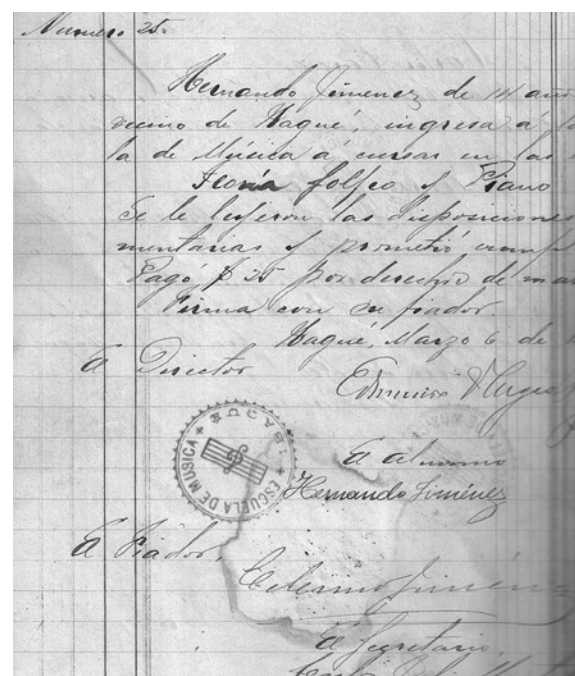 Numero 25.
Hernando Jimenez de 14 añ
vecino de Ibagué, ingresa á
la de Música á cursar en las
Teoría Solfeo y Piano
Se le leyeron las disposiciones
mentarias y prometió cump
Pagó $ 25 por derechos de ma
Firma con su fiador.
Ibagué, Marzo 6 de
El Director
El alumno
Hernando Jiménez
ESCUELA DE MUSICA + IBAGUE +
El Fiador,
Jiménez
El Secretario,